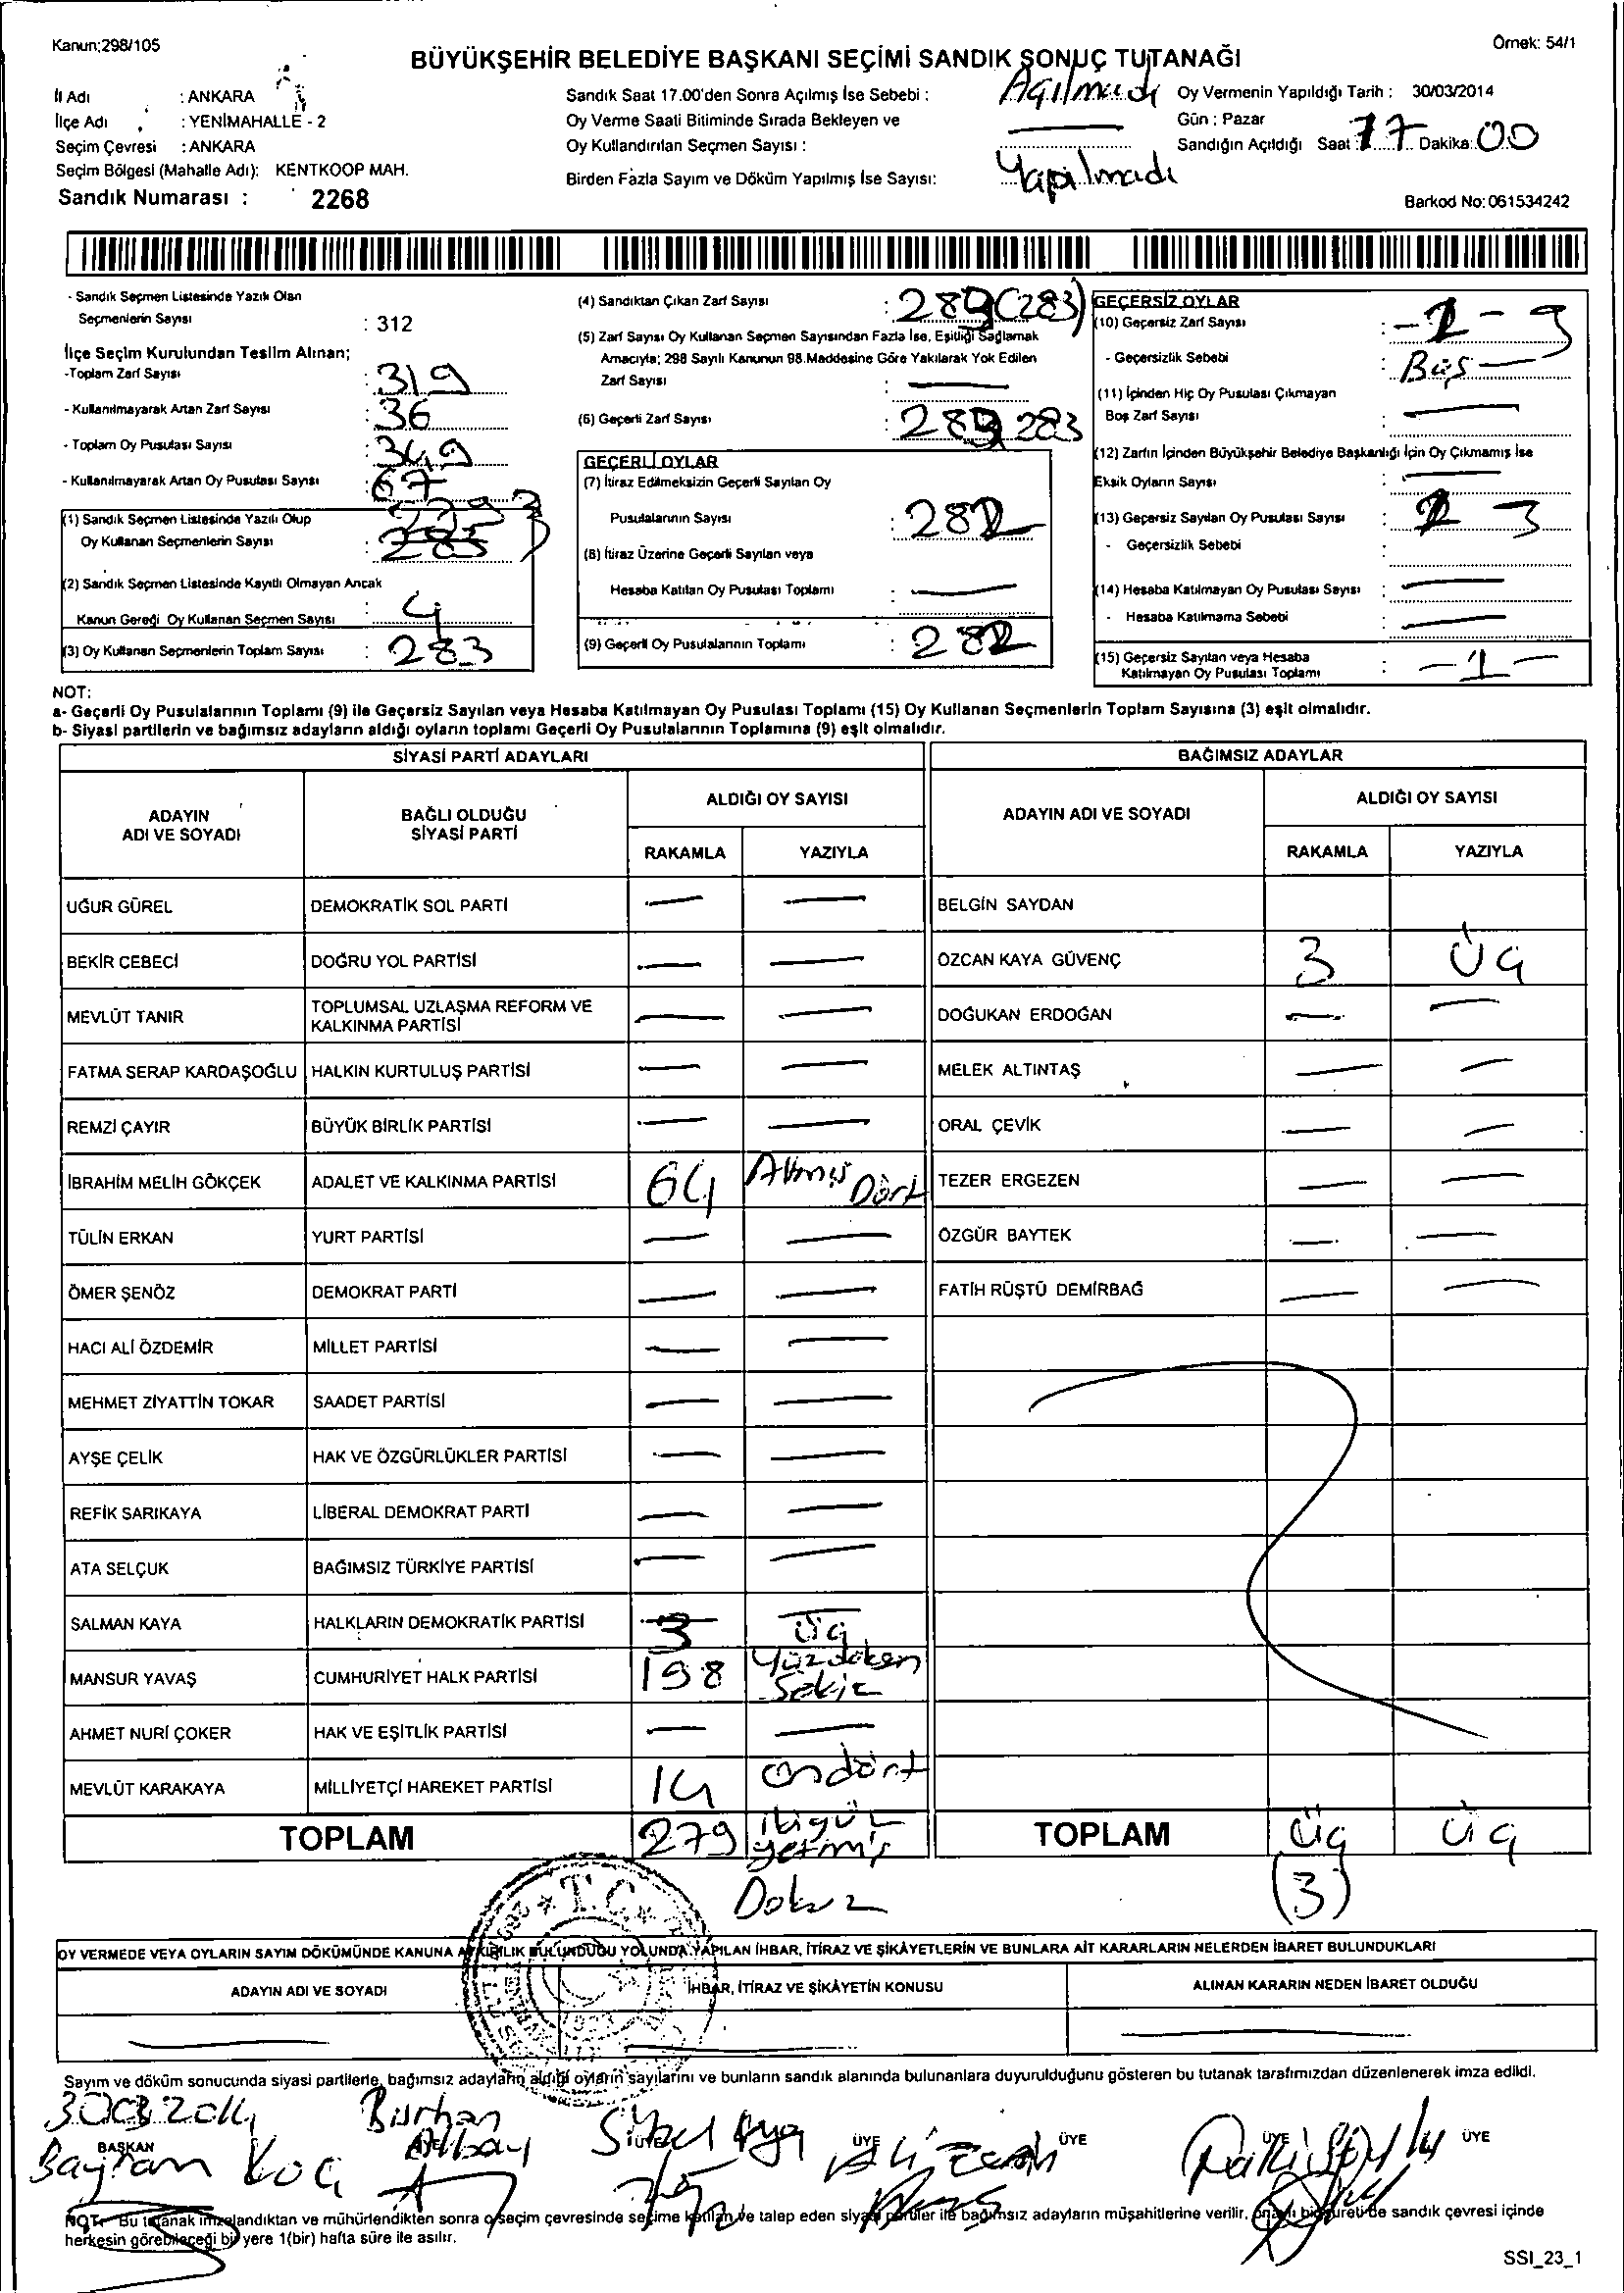 Kanun:298/105
Örnek: 54/1
BÜYÜKŞEHİR BELEDİYE BAŞKANI SEÇİMİ SANDIK SONUÇ TUTANAĞI
İl Adı : ANKARA
İlçe Adı : YENİMAHALLE - 2
Seçim Çevresi : ANKARA
Seçim Bölgesi (Mahalle Adı): KENTKOOP MAH.
Sandık Numarası : 2268
Sandık Saat 17.00'den Sonra Açılmış İse Sebebi : Açılmadı
Oy Verme Saati Bitiminde Sırada Bekleyen ve
Oy Kullandırılan Seçmen Sayısı :
Birden Fazla Sayım ve Döküm Yapılmış İse Sayısı: Yapılmadı
Oy Vermenin Yapıldığı Tarih : 30/03/2014
Gün : Pazar
Sandığın Açıldığı Saat : 17 Dakika: 00
Barkod No: 061534242
- Sandık Seçmen Listesinde Yazılı Olan
Seçmenlerin Sayısı : 312
İlçe Seçim Kurulundan Teslim Alınan;
-Toplam Zarf Sayısı : 319
- Kullanılmayarak Artan Zarf Sayısı : 36
- Toplam Oy Pusulası Sayısı : 349
- Kullanılmayarak Artan Oy Pusulası Sayısı : 67
(1) Sandık Seçmen Listesinde Yazılı Olup
Oy Kullanan Seçmenlerin Sayısı :
(2) Sandık Seçmen Listesinde Kayıtlı Olmayan Ancak
Kanun Gereği Oy Kullanan Seçmen Sayısı : 4
(3) Oy Kullanan Seçmenlerin Toplam Sayısı : 283
(4) Sandıktan Çıkan Zarf Sayısı : 289 (283)
(5) Zarf Sayısı Oy Kullanan Seçmen Sayısından Fazla İse, Eşitliği Sağlamak
Amacıyla; 298 Sayılı Kanunun 98.Maddesine Göre Yakılarak Yok Edilen
Zarf Sayısı :
(6) Geçerli Zarf Sayısı : 289 283
GEÇERLİ OYLAR
(7) İtiraz Edilmeksizin Geçerli Sayılan Oy
Pusulalarının Sayısı : 282
(8) İtiraz Üzerine Geçerli Sayılan veya
Hesaba Katılan Oy Pusulası Toplamı :
(9) Geçerli Oy Pusulalarının Toplamı : 282
GEÇERSİZ OYLAR
(10) Geçersiz Zarf Sayısı :
- Geçersizlik Sebebi : Boş
(11) İçinden Hiç Oy Pusulası Çıkmayan
Boş Zarf Sayısı :
(12) Zarfın İçinden Büyükşehir Belediye Başkanlığı İçin Oy Çıkmamış İse
Eksik Oyların Sayısı :
(13) Geçersiz Sayılan Oy Pusulası Sayısı : 3
- Geçersizlik Sebebi :
(14) Hesaba Katılmayan Oy Pusulası Sayısı :
- Hesaba Katılmama Sebebi :
(15) Geçersiz Sayılan veya Hesaba
Katılmayan Oy Pusulası Toplamı : -1-
NOT:
a- Geçerli Oy Pusulalarının Toplamı (9) ile Geçersiz Sayılan veya Hesaba Katılmayan Oy Pusulası Toplamı (15) Oy Kullanan Seçmenlerin Toplam Sayısına (3) eşit olmalıdır.
b- Siyasi partilerin ve bağımsız adayların aldığı oyların toplamı Geçerli Oy Pusulalarının Toplamına (9) eşit olmalıdır.
SİYASİ PARTİ ADAYLARI
BAĞIMSIZ ADAYLAR
ADAYIN ADI VE SOYADI
BAĞLI OLDUĞU SİYASİ PARTİ
ALDIĞI OY SAYISI
RAKAMLA YAZIYLA
ADAYIN ADI VE SOYADI
ALDIĞI OY SAYISI
RAKAMLA YAZIYLA
UĞUR GÜREL DEMOKRATİK SOL PARTİ — — BELGİN SAYDAN
BEKİR CEBECİ DOĞRU YOL PARTİSİ — — ÖZCAN KAYA GÜVENÇ 3 Üç
MEVLÜT TANIR TOPLUMSAL UZLAŞMA REFORM VE KALKINMA PARTİSİ — — DOĞUKAN ERDOĞAN — —
FATMA SERAP KARDAŞOĞLU HALKIN KURTULUŞ PARTİSİ — — MELEK ALTINTAŞ — —
REMZİ ÇAYIR BÜYÜK BİRLİK PARTİSİ — — ORAL ÇEVİK — —
İBRAHİM MELİH GÖKÇEK ADALET VE KALKINMA PARTİSİ 64 Altmış Dört TEZER ERGEZEN — —
TÜLİN ERKAN YURT PARTİSİ — — ÖZGÜR BAYTEK — —
ÖMER ŞENÖZ DEMOKRAT PARTİ — — FATİH RÜŞTÜ DEMİRBAĞ — —
HACI ALİ ÖZDEMİR MİLLET PARTİSİ — —
MEHMET ZİYATTİN TOKAR SAADET PARTİSİ — —
AYŞE ÇELİK HAK VE ÖZGÜRLÜKLER PARTİSİ — —
REFİK SARIKAYA LİBERAL DEMOKRAT PARTİ — —
ATA SELÇUK BAĞIMSIZ TÜRKİYE PARTİSİ — —
SALMAN KAYA HALKLARIN DEMOKRATİK PARTİSİ 3 Üç
MANSUR YAVAŞ CUMHURİYET HALK PARTİSİ 198 Yüzdoksen Sekiz
AHMET NURİ ÇOKER HAK VE EŞİTLİK PARTİSİ — —
MEVLÜT KARAKAYA MİLLİYETÇİ HAREKET PARTİSİ 14 ondört
TOPLAM 279 ikiyüz yetmiş Dokuz TOPLAM Üç (3) Üç
T.C.
OY VERMEDE VEYA OYLARIN SAYIM DÖKÜMÜNDE KANUNA AYKIRILIK BULUNDUĞU YOLUNDA YAPILAN İHBAR, İTİRAZ VE ŞİKÂYETLERİN VE BUNLARA AİT KARARLARIN NELERDEN İBARET BULUNDUKLARI
ADAYIN ADI VE SOYADI İHBAR, İTİRAZ VE ŞİKÂYETİN KONUSU ALINAN KARARIN NEDEN İBARET OLDUĞU
Sayım ve döküm sonucunda siyasi partilerle, bağımsız adayların aldığı oyların sayılarını ve bunların sandık alanında bulunanlara duyurulduğunu gösteren bu tutanak tarafımızdan düzenlenerek imza edildi.
30.03.2014
BAŞKAN ÜYE ÜYE ÜYE ÜYE ÜYE
Bayram Koç Burhan Albay
NOT: Bu tutanak imzalandıktan ve mühürlendikten sonra o seçim çevresinde seçime katılan ve talep eden siyasi partiler ile bağımsız adayların müşahitlerine verilir, onaylı bir sureti de sandık çevresi içinde
herkesin görebileceği bir yere 1(bir) hafta süre ile asılır.
SSI_23_1